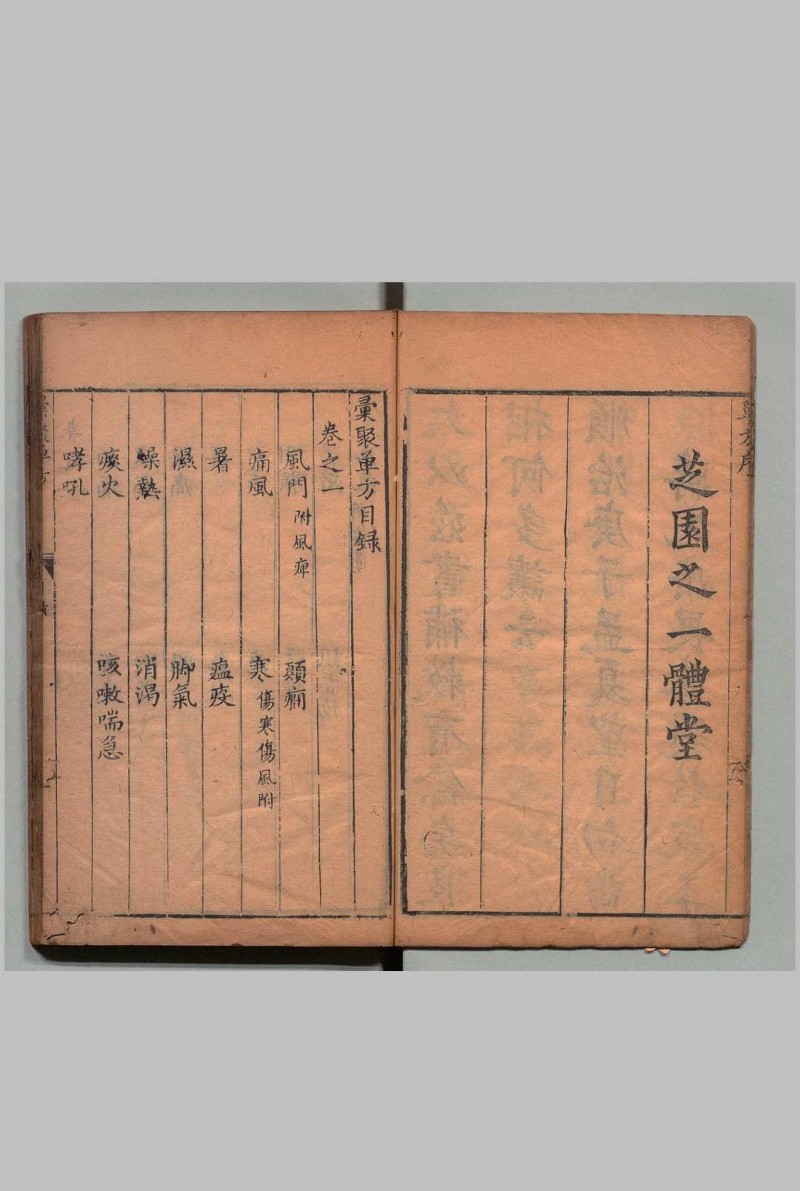 芝園之一體堂
彙聚单方目録
卷之一
風門 附風痺 顛癇
痛風 寒 傷寒傷風附
暑 瘟疫
濕 脚氣
燥熱 消渴
痰火 咳嗽喘急
哮吼